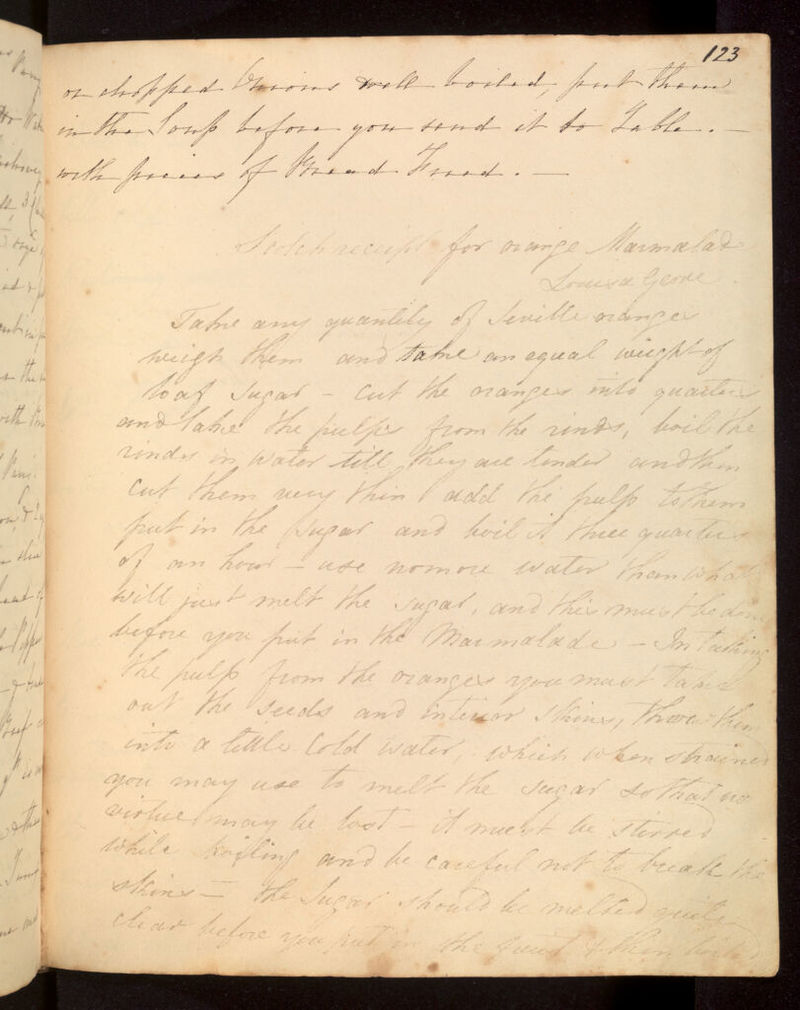 123
or chopped Onions well boiled, put them
in the Soup before you send it to Table. —
with pieces of Bread Fried. —
Scotch receipt for orange Marmalade
Louisa
Take any quantity of Seville oranges
weigh them and take an equal weight of
loaf sugar – cut the oranges into quarters
and take the pulps from the rinds, boil the
rinds in water till they are tender and then
cut them very thin add the pulp to them
put in the sugar and boil it three quarters
of an hour – use no more water than what
will just melt the sugar, and this must be done
before you put in the Marmalade – In taking
the pulp from the oranges you must take
out the seeds and interior skins, throw them
into a little Cold water, which when strained
you may use to melt the sugar so that no
virtue may be lost – it must be stirred
while boiling and be careful not to break the
skins – the Sugar should be melted quite
clear before you put in the fruit & then boiled